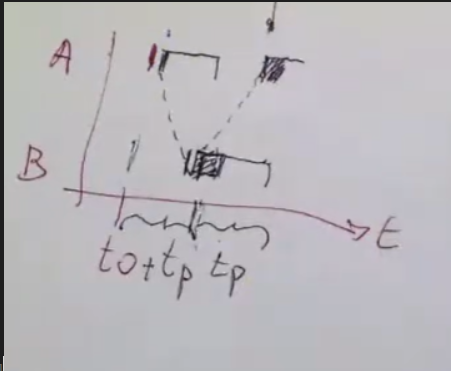 A
B
t
to+tp tp